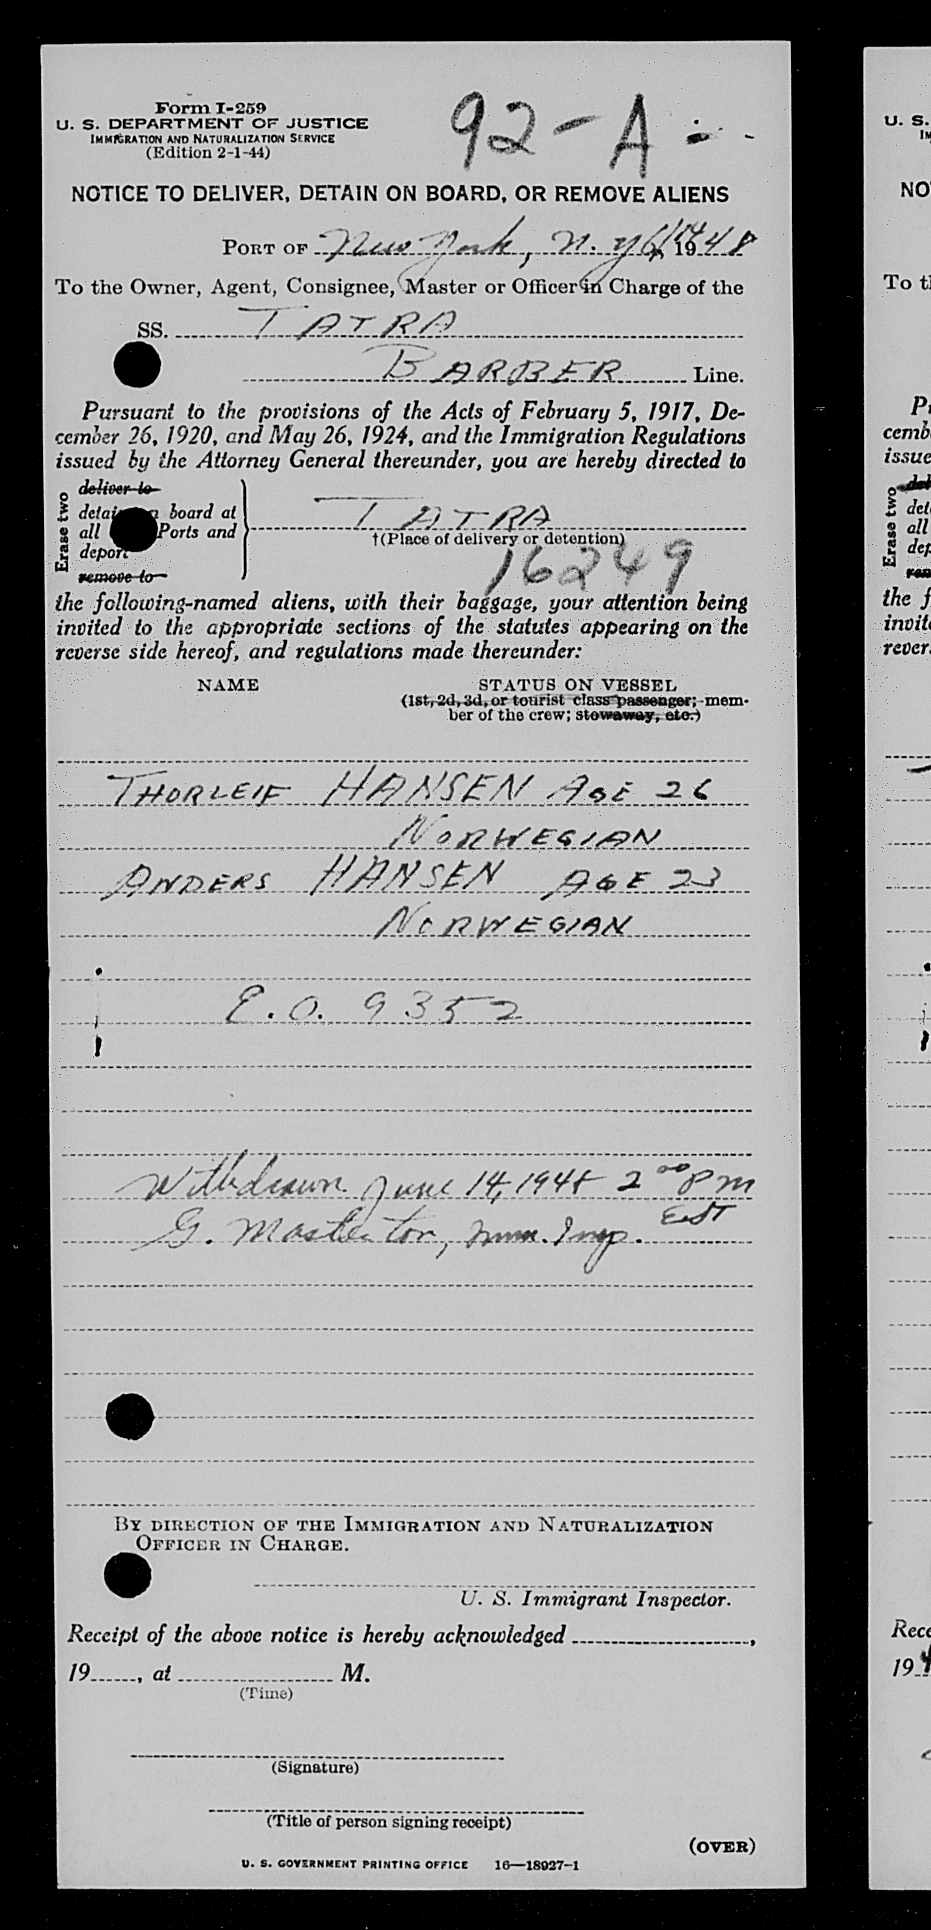 Form I-259
U. S. DEPARTMENT OF JUSTICE
IMMIGRATION AND NATURALIZATION SERVICE
(Edition 2-1-44)
92-A
NOTICE TO DELIVER, DETAIN ON BOARD, OR REMOVE ALIENS
PORT OF New York, N. Y. 6/14 1948
To the Owner, Agent, Consignee, Master or Officer in Charge of the
SS. TATRA
BARBER Line.
Pursuant to the provisions of the Acts of February 5, 1917, De-
cember 26, 1920, and May 26, 1924, and the Immigration Regulations
issued by the Attorney General thereunder, you are hereby directed to
Erase two
deliver to
detain on board at
all Ports and
deport
remove to
TATRA
†(Place of delivery or detention)
16249
the following-named aliens, with their baggage, your attention being
invited to the appropriate sections of the statutes appearing on the
reverse side hereof, and regulations made thereunder:
NAME STATUS ON VESSEL
(1st, 2d, 3d, or tourist class passenger; mem-
ber of the crew; stowaway, etc.)
THORLEIF HANSEN AGE 26
NORWEGIAN
ANDERS HANSEN AGE 23
NORWEGIAN
E.O. 9352
Withdrawn June 14, 1948 2 00 PM
EdT
G. Masterton, Imm. Insp.
BY DIRECTION OF THE IMMIGRATION AND NATURALIZATION
OFFICER IN CHARGE.
U. S. Immigrant Inspector.
Receipt of the above notice is hereby acknowledged ,
19 , at M.
(Time)
(Signature)
(Title of person signing receipt)
(OVER)
U. S. GOVERNMENT PRINTING OFFICE 16—18927-1